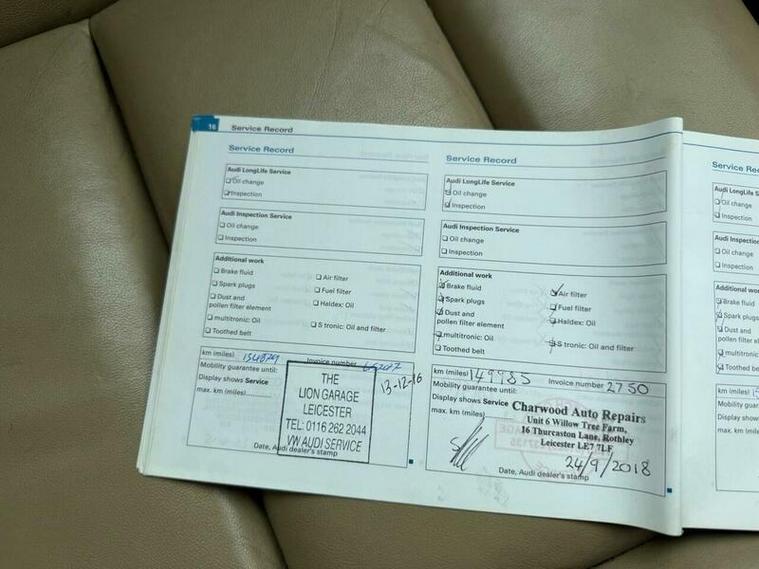 16 Service Record
Service Record
Audi LongLife Service
Oil change
Inspection
Audi Inspection Service
Oil change
Inspection
Additional work
Brake fluid
Air filter
Spark plugs
Fuel filter
Dust and
pollen filter element
Haldex: Oil
multitronic: Oil
S tronic: Oil and filter
Toothed belt
km (miles)
Invoice number
Mobility guarantee until:
Display shows Service
max. km (miles)
13-12-16
THE
LION GARAGE
LEICESTER
TEL: 0116 262 2044
VW AUDI SERVICE
Date, Audi dealer's stamp
Service Record
Audi LongLife Service
Oil change
Inspection
Audi Inspection Service
Oil change
Inspection
Additional work
Brake fluid
Air filter
Spark plugs
Fuel filter
Dust and
pollen filter element
Haldex: Oil
multitronic: Oil
S tronic: Oil and filter
Toothed belt
km (miles) 149985 Invoice number 2750
Mobility guarantee until:
Display shows Service
max. km (miles)
Charwood Auto Repairs
Unit 6 Willow Tree Farm,
16 Thurcaston Lane, Rothley
Leicester LE7 7LF
24/9/2018
Date, Audi dealer's stamp
Service Re
Audi LongLife S
Oil change
Inspection
Audi Inspection
Oil change
Inspection
Additional wo
Brake fluid
Spark plugs
Dust and
pollen filter el
multitronic
Toothed be
km (miles)
Mobility guar
Display show
max. km (mile